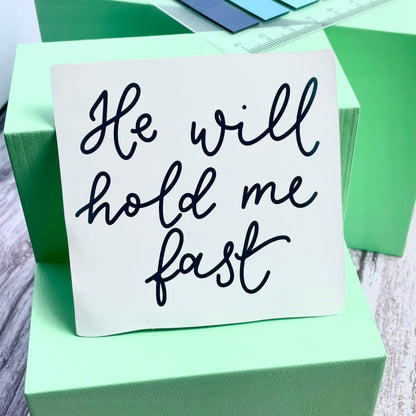 He will
hold me
fast